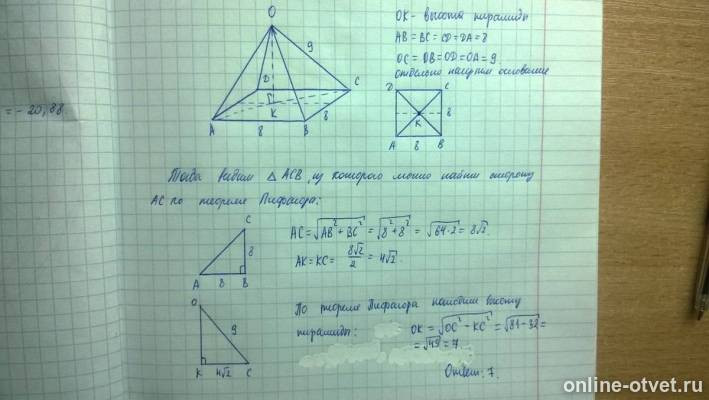 = - 20,88.
O
9
D
C
K
A
8
B
8
OK - высота пирамиды
AB = BC = CD = DA = 8
OC = OB = OD = OA = 9.
отдельно начертим основание
D
C
K
8
A
8
B
Тогда видим △ ACB, из которого можно найти сторону
AC по теореме Пифагора:
C
8
A
8
B
AC = √(AB² + BC²) = √(8² + 8²) = √(64·2) = 8√2.
AK = KC = 8√2/2 = 4√2.
O
9
K
4√2
C
По теореме Пифагора находим высоту
пирамиды:
OK = √(OC² - KC²) = √(81 - 32) =
= √49 = 7
Ответ: 7.
online-otvet.ru